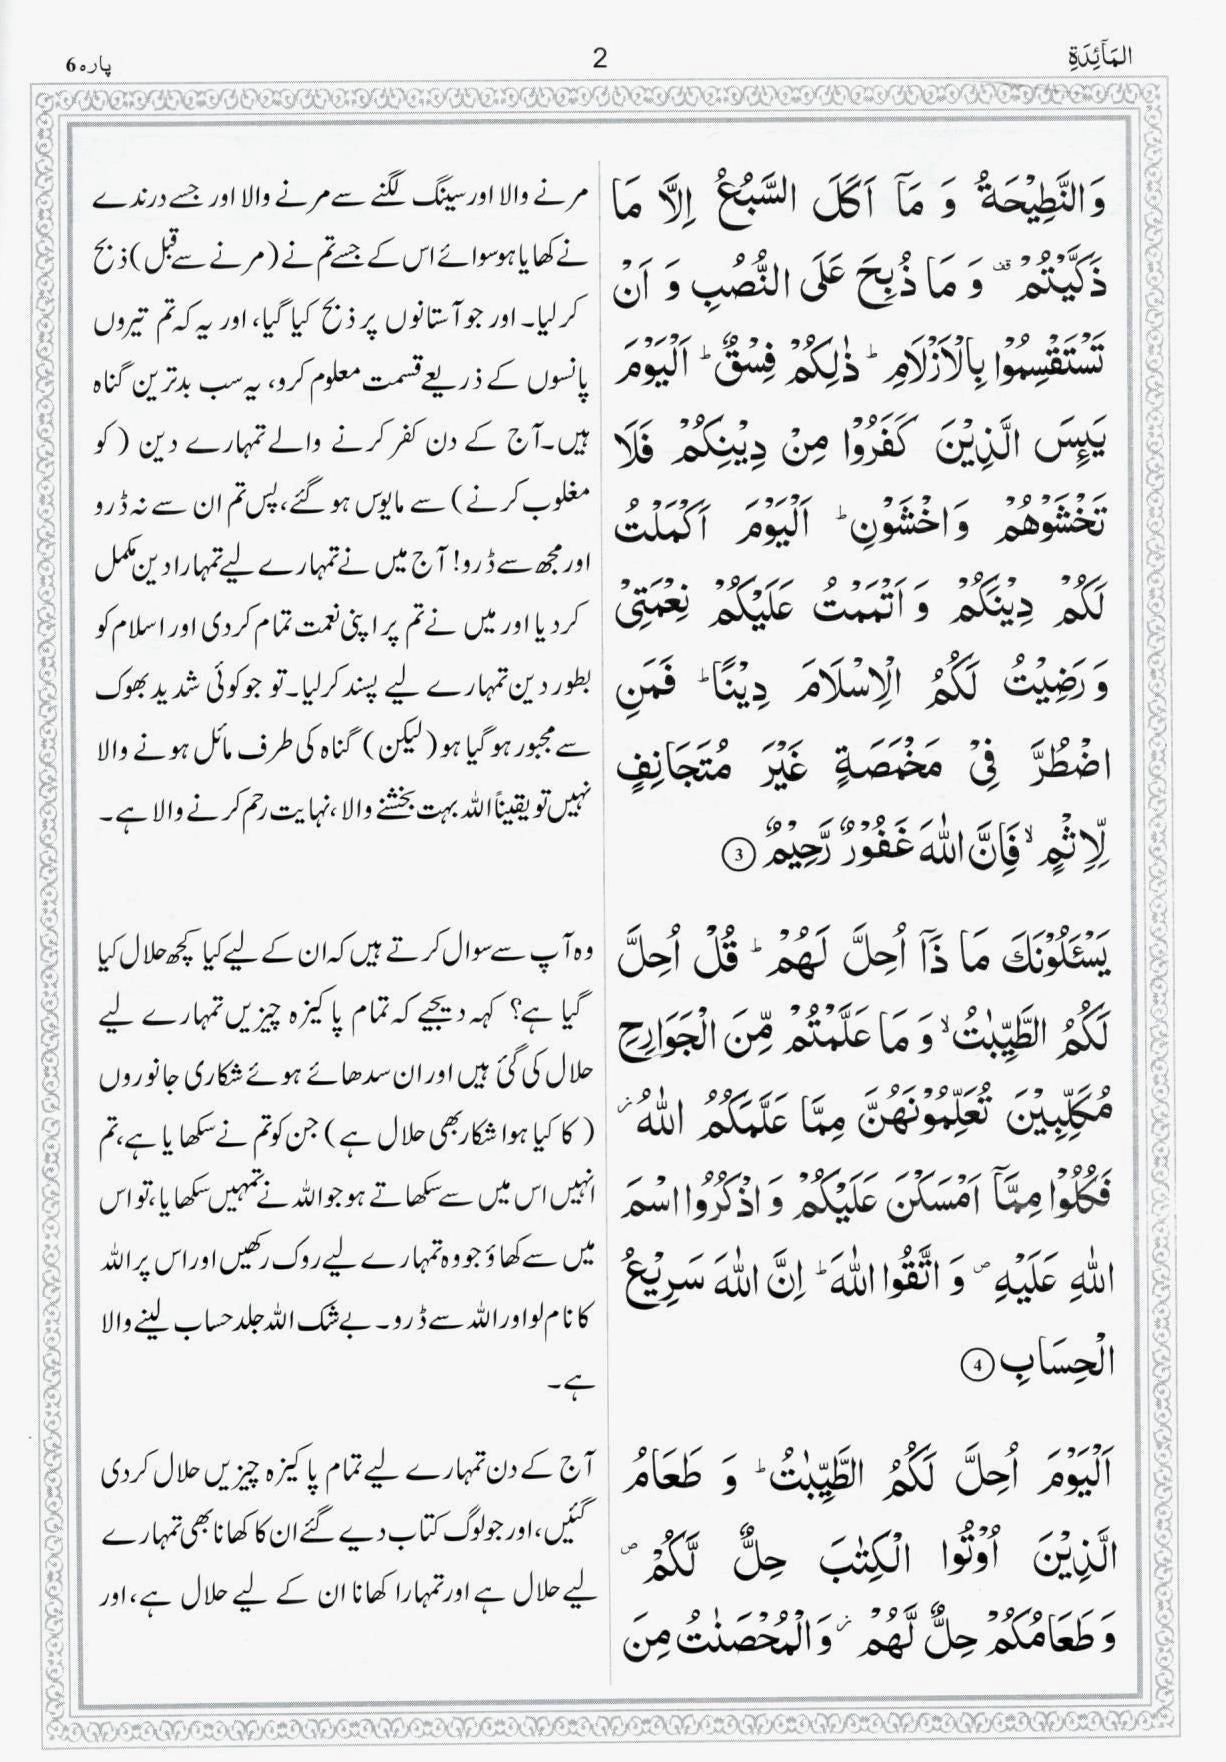 المَآئِدَةِ
2
پارہ 6
وَالنَّطِيْحَةُ وَ مَاۤ اَكَلَ السَّبُعُ اِلَّا مَا
ذَكَّيْتُمْ ۫ وَ مَا ذُبِحَ عَلَى النُّصُبِ وَ اَنْ
تَسْتَقْسِمُوْا بِالْاَزْلَامِ ؕ ذٰلِكُمْ فِسْقٌ ؕ اَلْيَوْمَ
يَىِٕسَ الَّذِيْنَ كَفَرُوْا مِنْ دِيْنِكُمْ فَلَا
تَخْشَوْهُمْ وَاخْشَوْنِ ؕ اَلْيَوْمَ اَكْمَلْتُ
لَكُمْ دِيْنَكُمْ وَ اَتْمَمْتُ عَلَيْكُمْ نِعْمَتِيْ
وَ رَضِيْتُ لَكُمُ الْاِسْلَامَ دِيْنًا ؕ فَمَنِ
اضْطُرَّ فِيْ مَخْمَصَةٍ غَيْرَ مُتَجَانِفٍ
لِّاِثْمٍ ۙ فَاِنَّ اللّٰهَ غَفُوْرٌ رَّحِيْمٌ 3
يَسْـَٔلُوْنَكَ مَا ذَاۤ اُحِلَّ لَهُمْ ؕ قُلْ اُحِلَّ
لَكُمُ الطَّيِّبٰتُ ۙ وَ مَا عَلَّمْتُمْ مِّنَ الْجَوَارِحِ
مُكَلِّبِيْنَ تُعَلِّمُوْنَهُنَّ مِمَّا عَلَّمَكُمُ اللّٰهُ ؗ
فَكُلُوْا مِمَّاۤ اَمْسَكْنَ عَلَيْكُمْ وَ اذْكُرُوا اسْمَ
اللّٰهِ عَلَيْهِ ۪ وَ اتَّقُوا اللّٰهَ ؕ اِنَّ اللّٰهَ سَرِيْعُ
الْحِسَابِ 4
اَلْيَوْمَ اُحِلَّ لَكُمُ الطَّيِّبٰتُ ؕ وَ طَعَامُ
الَّذِيْنَ اُوْتُوا الْكِتٰبَ حِلٌّ لَّكُمْ ۪
وَ طَعَامُكُمْ حِلٌّ لَّهُمْ ؗ وَالْمُحْصَنٰتُ مِنَ
مرنے والا اور سینگ لگنے سے مرنے والا اور جسے درندے
نے کھایا ہو سوائے اس کے جسے تم نے (مرنے سے قبل) ذبح
کر لیا۔ اور جو آستانوں پر ذبح کیا گیا، اور یہ کہ تم تیروں
پانسوں کے ذریعے قسمت معلوم کرو، یہ سب بدترین گناہ
ہیں۔ آج کے دن کفر کرنے والے تمہارے دین (کو
مغلوب کرنے) سے مایوس ہو گئے، پس تم ان سے نہ ڈرو
اور مجھ سے ڈرو! آج میں نے تمہارے لیے تمہارا دین مکمل
کر دیا اور میں نے تم پر اپنی نعمت تمام کر دی اور اسلام کو
بطور دین تمہارے لیے پسند کر لیا۔ تو جو کوئی شدید بھوک
سے مجبور ہو گیا ہو (لیکن) گناہ کی طرف مائل ہونے والا
نہیں تو یقیناً اللہ بہت بخشنے والا، نہایت رحم کرنے والا ہے۔
وہ آپ سے سوال کرتے ہیں کہ ان کے لیے کیا کچھ حلال کیا
گیا ہے؟ کہہ دیجیے کہ تمام پاکیزہ چیزیں تمہارے لیے
حلال کی گئی ہیں اور ان سدھائے ہوئے شکاری جانوروں
(کا کیا ہوا شکار بھی حلال ہے) جن کو تم نے سکھایا ہے، تم
انہیں اس میں سے سکھاتے ہو جو اللہ نے تمہیں سکھایا، تو اس
میں سے کھاؤ جو وہ تمہارے لیے روک رکھیں اور اس پر اللہ
کا نام لو اور اللہ سے ڈرو۔ بے شک اللہ جلد حساب لینے والا
ہے۔
آج کے دن تمہارے لیے تمام پاکیزہ چیزیں حلال کر دی
گئیں، اور جو لوگ کتاب دیے گئے ان کا کھانا بھی تمہارے
لیے حلال ہے اور تمہارا کھانا ان کے لیے حلال ہے، اور